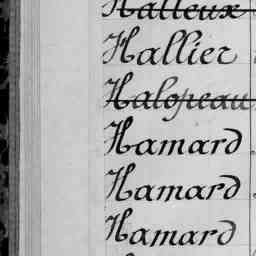 Halleux
Hallier
Halopeau
Hamard
Hamard
Hamard